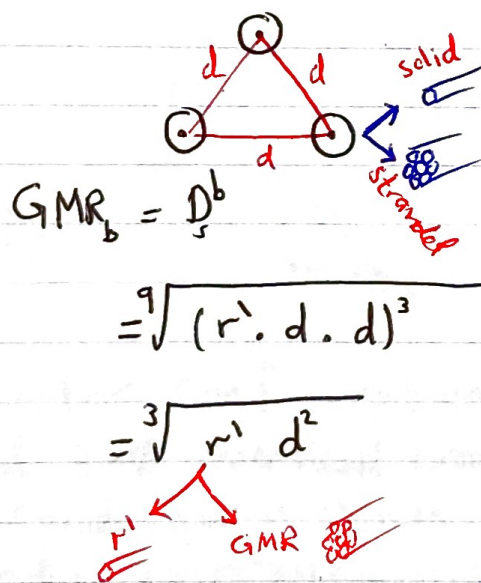 d d
solid
d
stranded
GMR_b = D_s^b
= ⁹√(r'. d . d)³
= ³√r' d²
r' GMR